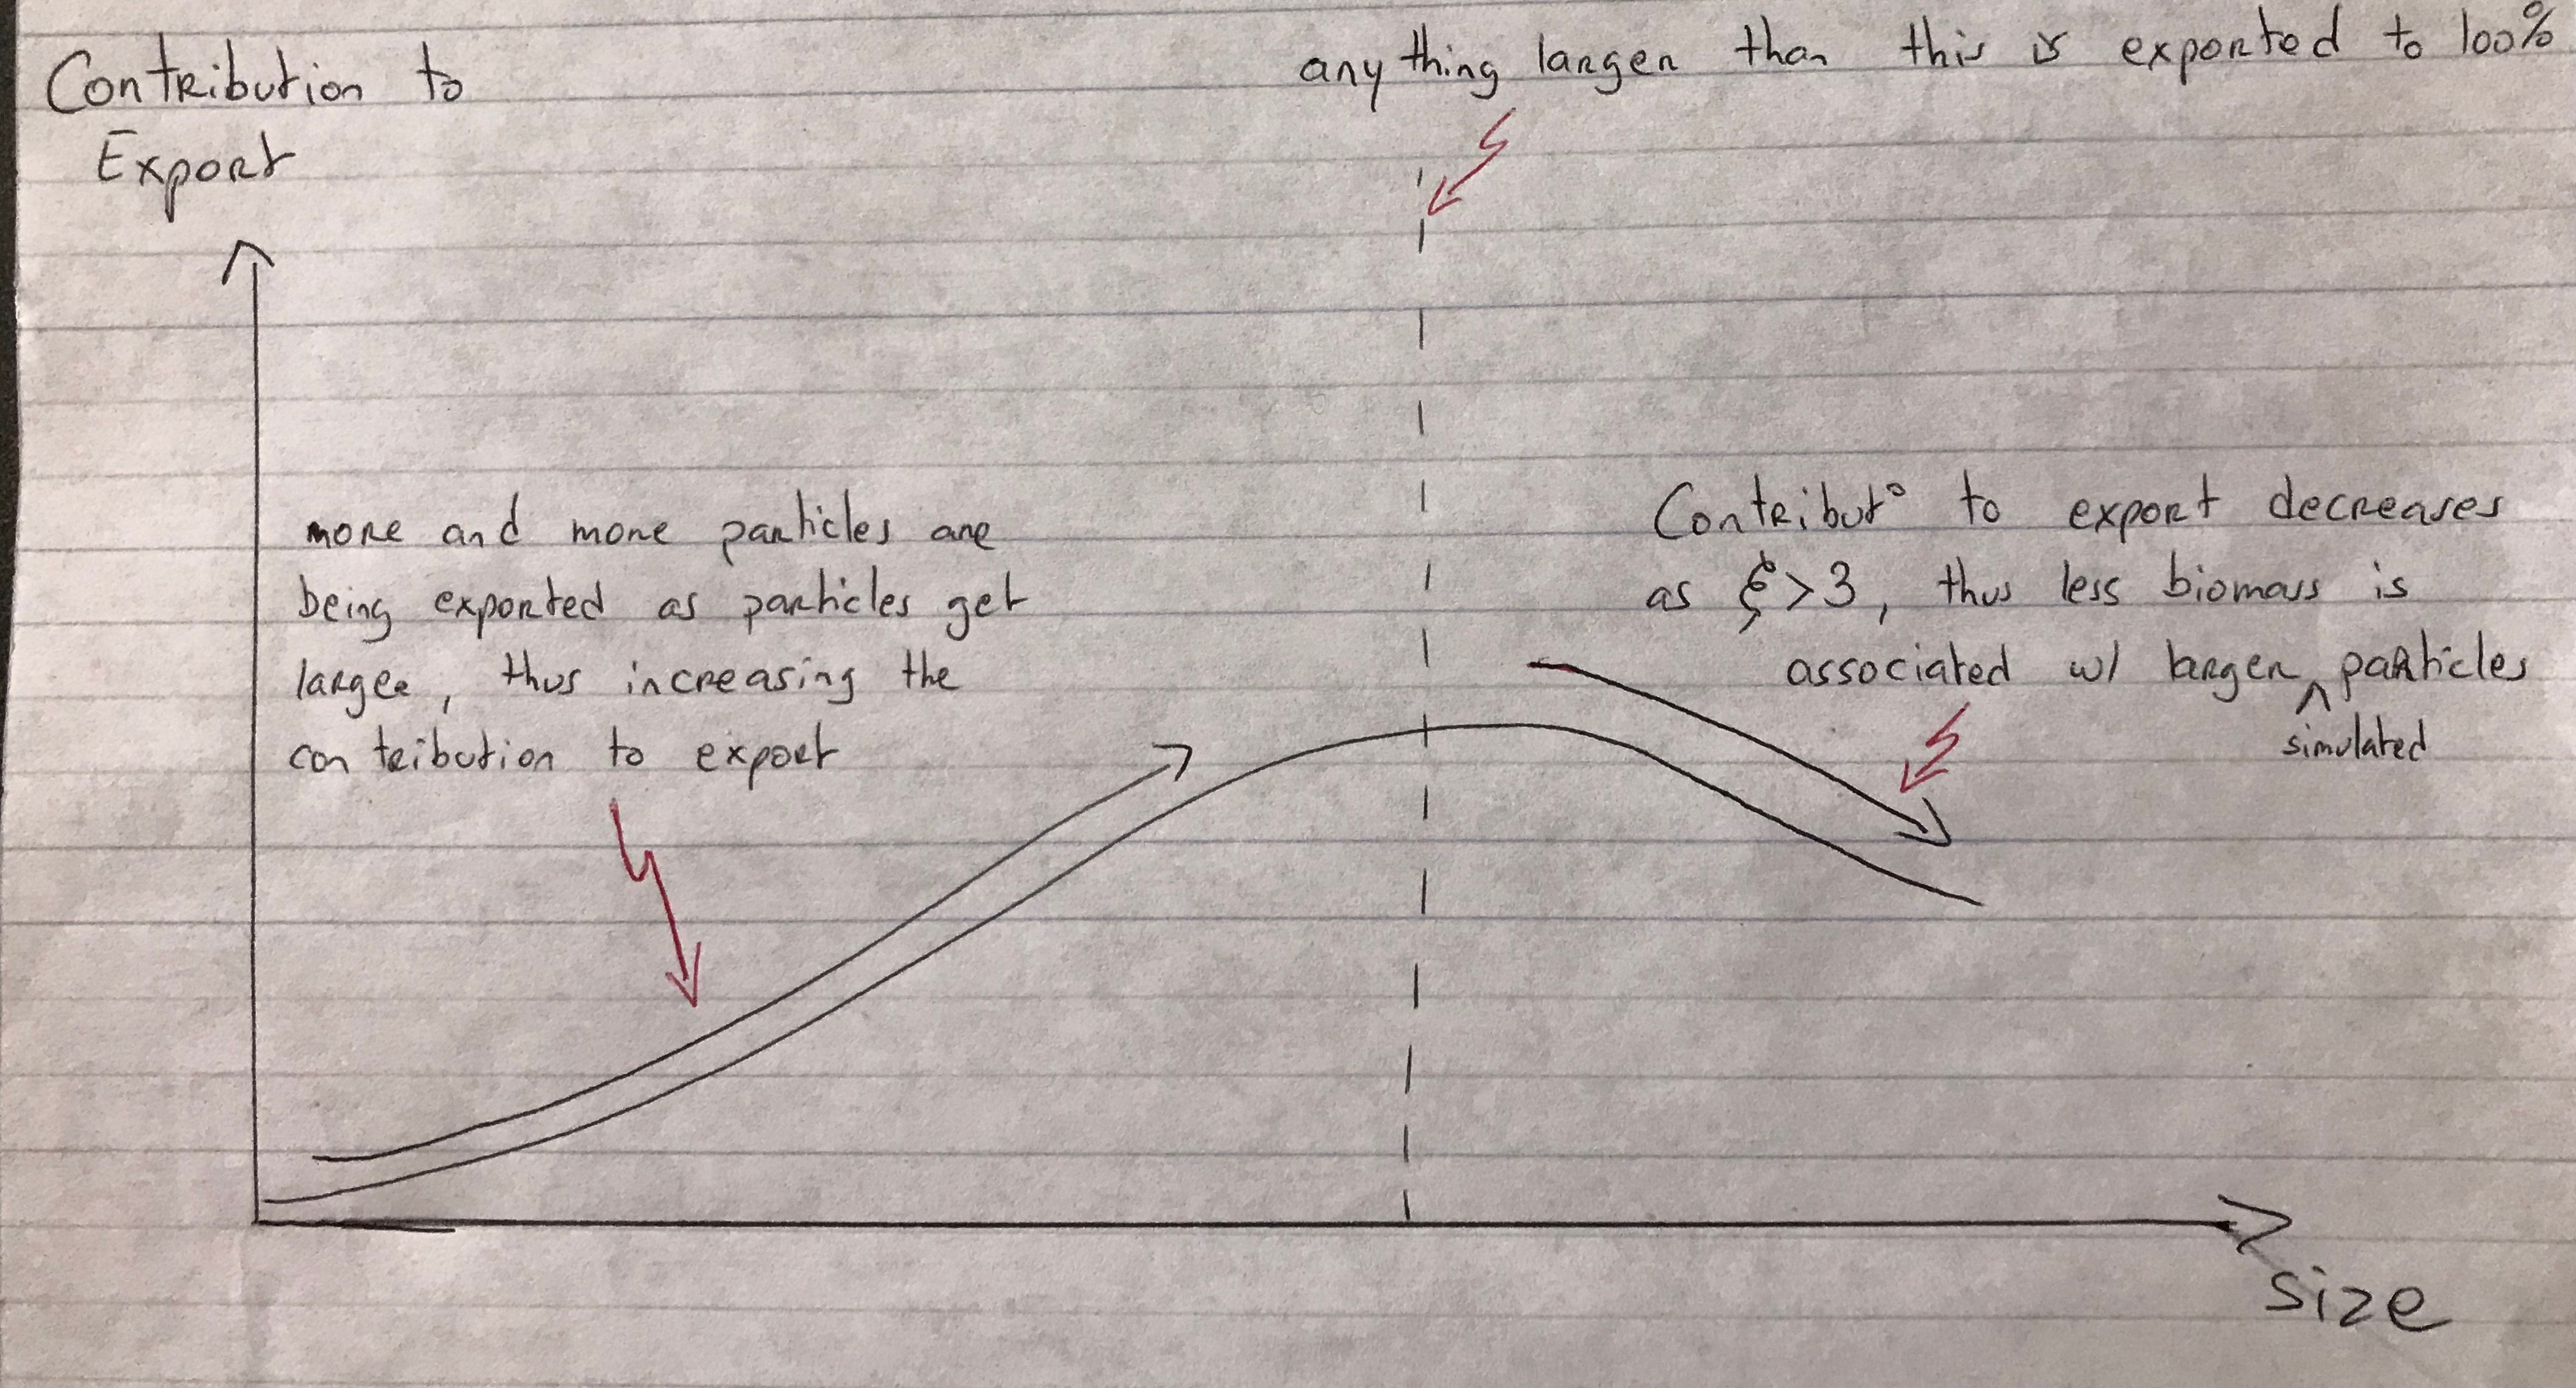 Contribution to
Export
anything larger than this is exported to 100%
more and more particles are
being exported as particles get
larger, thus increasing the
contribution to export
Contribut° to export decreases
as ξ>3, thus less biomass is
associated w/ larger ^ particles
simulated
size